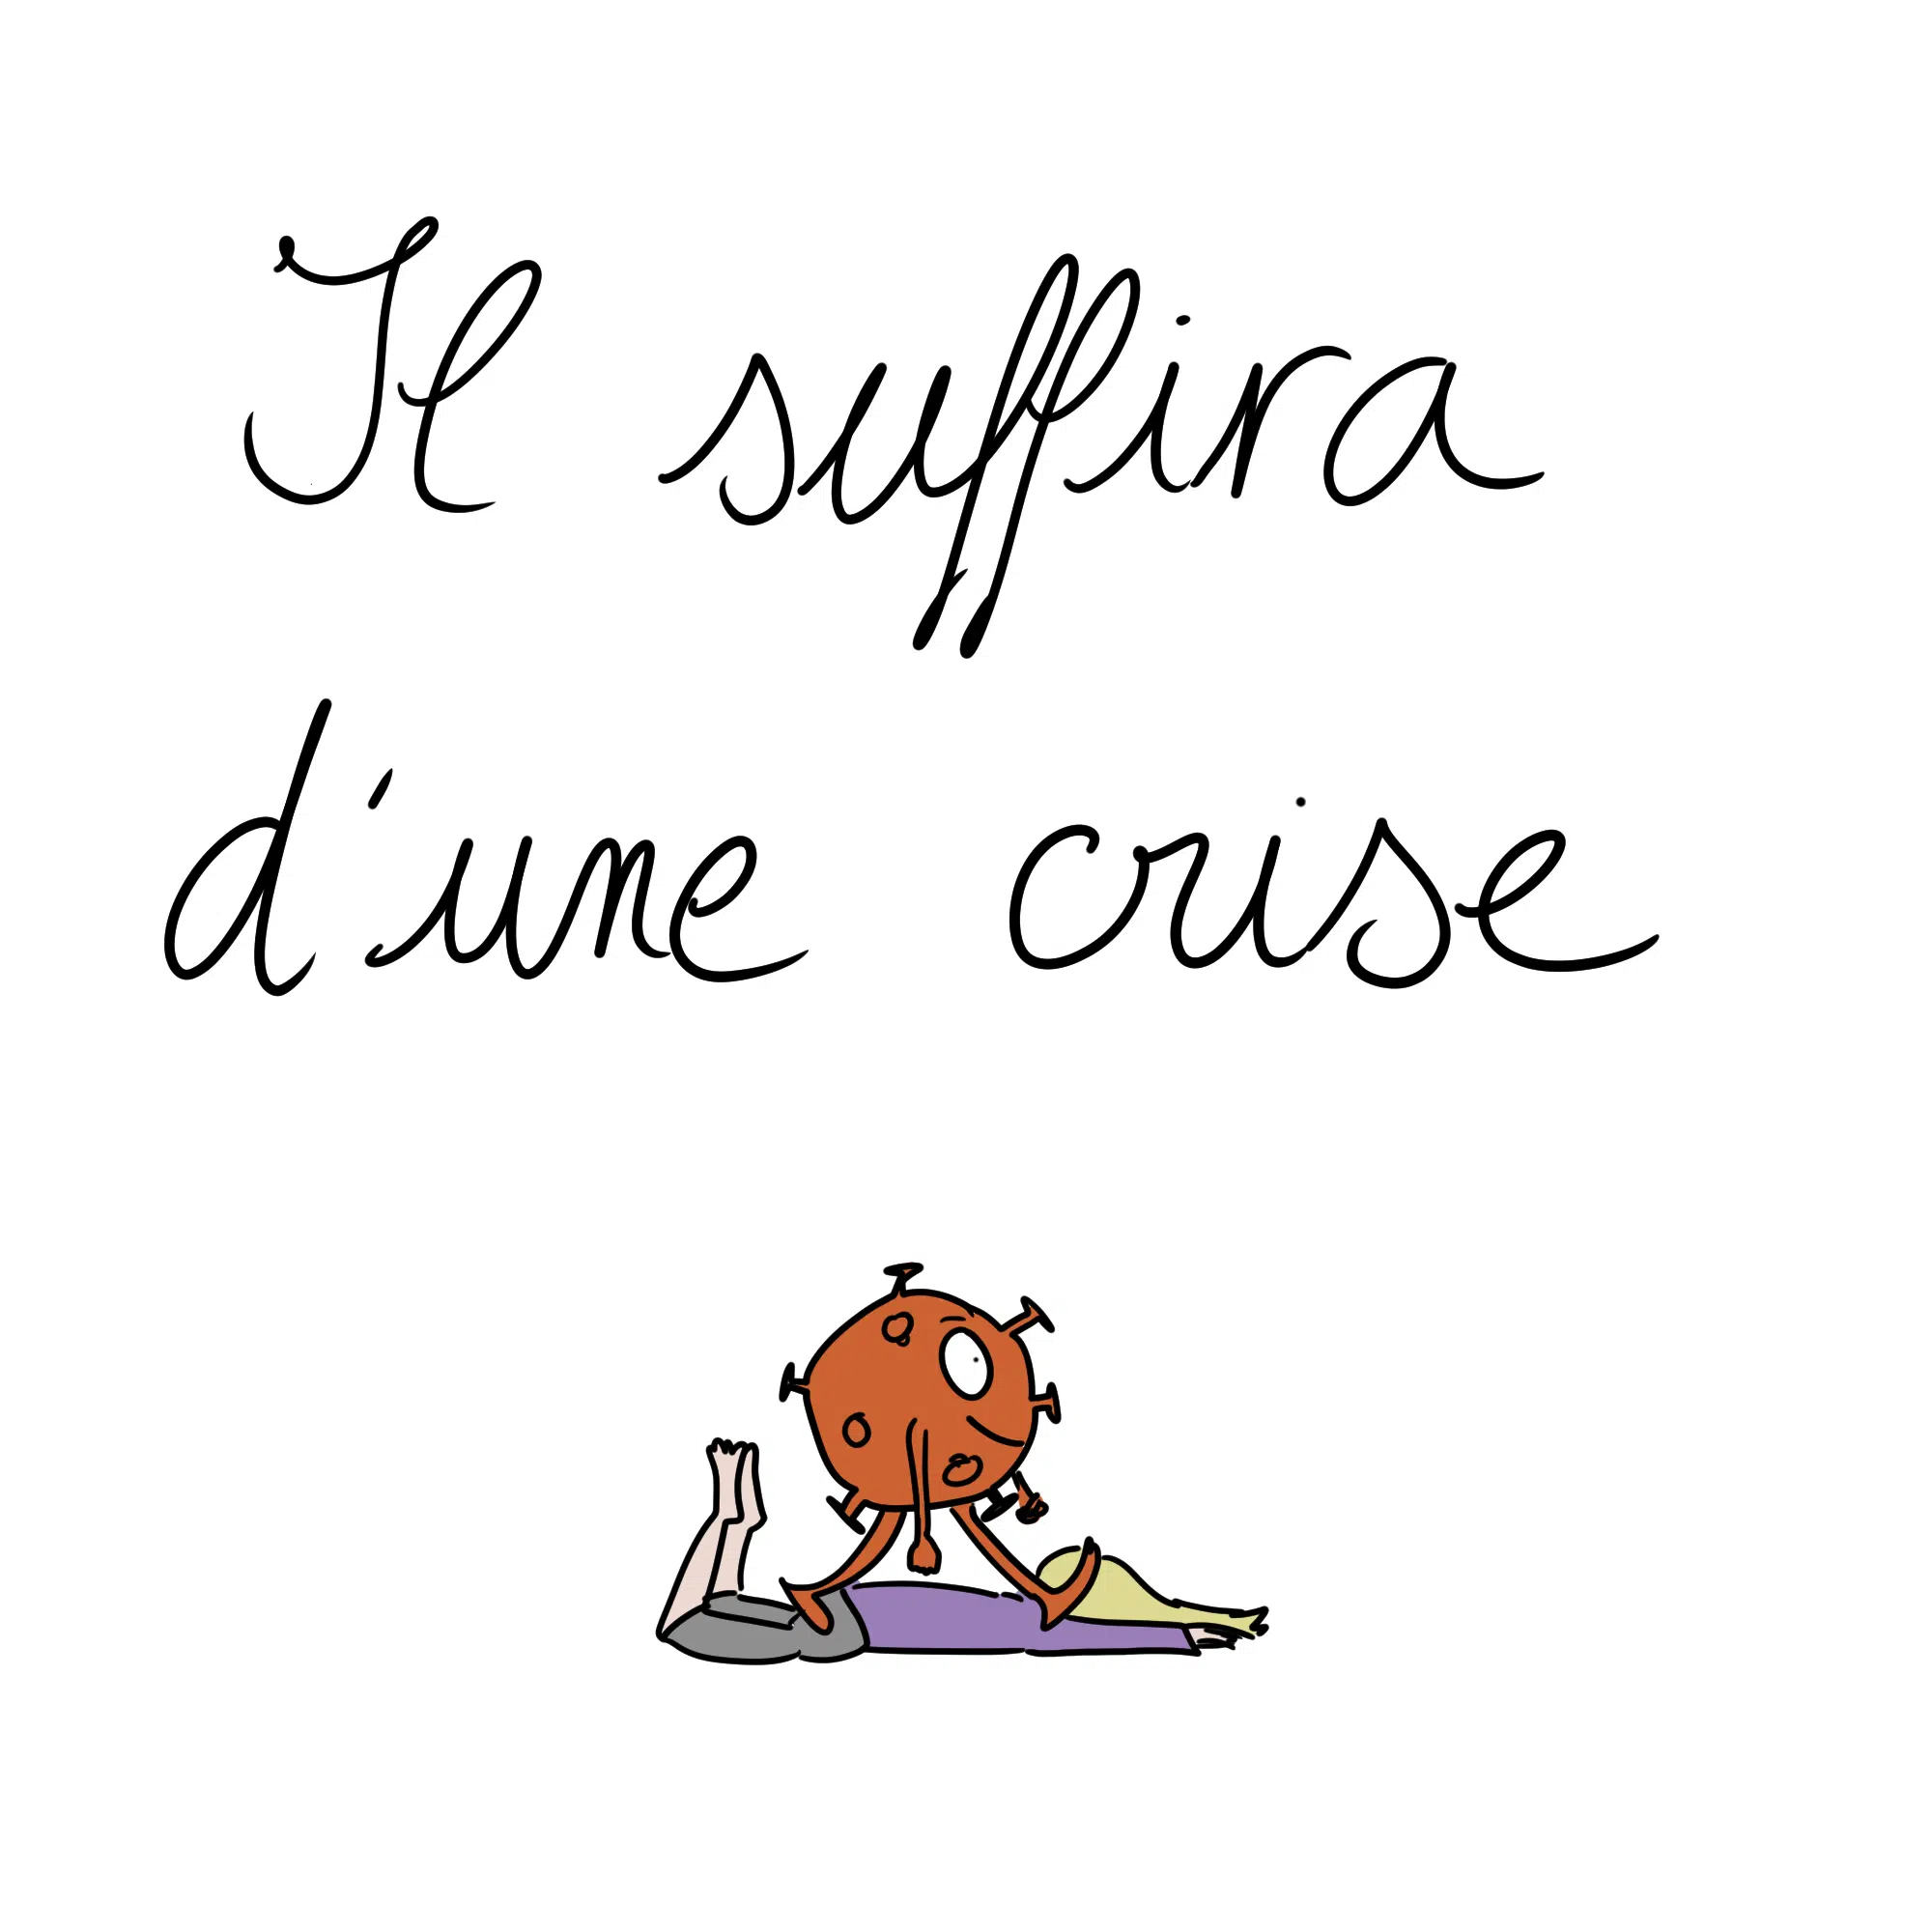 Il suffira
d'une crise